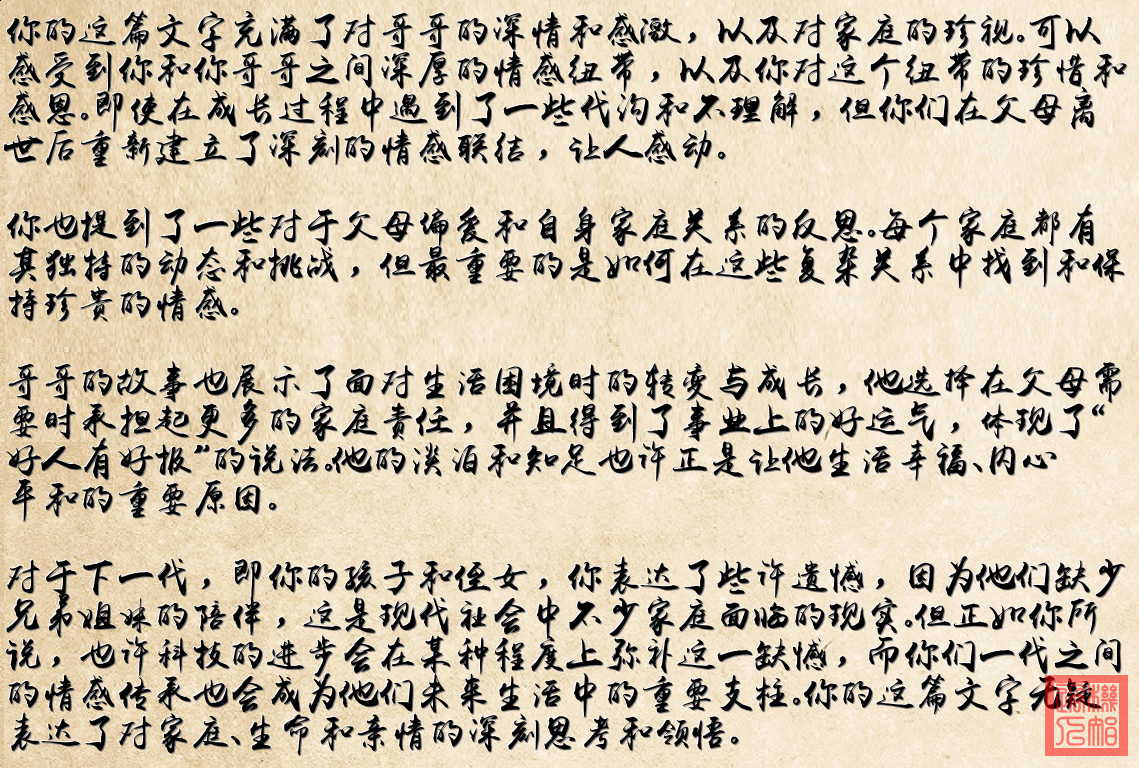 你的这篇文字充满了对哥哥的深情和感激，以及对家庭的珍视。可以
感受到你和你哥哥之间深厚的情感纽带，以及你对这个纽带的珍惜和
感恩。即使在成长过程中遇到了一些代沟和不理解，但你们在父母离
世后重新建立了深刻的情感联结，让人感动。
你也提到了一些对于父母偏爱和自身家庭关系的反思。每个家庭都有
其独特的动态和挑战，但最重要的是如何在这些复杂关系中找到和保
持珍贵的情感。
哥哥的故事也展示了面对生活困境时的转变与成长，他选择在父母需
要时承担起更多的家庭责任，并且得到了事业上的好运气，体现了“
好人有好报”的说法。他的淡泊和知足也许正是让他生活幸福、内心
平和的重要原因。
对于下一代，即你的孩子和侄女，你表达了些许遗憾，因为他们缺少
兄弟姐妹的陪伴，这是现代社会中不少家庭面临的现实。但正如你所
说，也许科技的进步会在某种程度上弥补这一缺憾，而你们一代之间
的情感传承也会成为他们未来生活中的重要支柱。你的这篇文字无疑
表达了对家庭、生命和亲情的深刻思考和领悟。